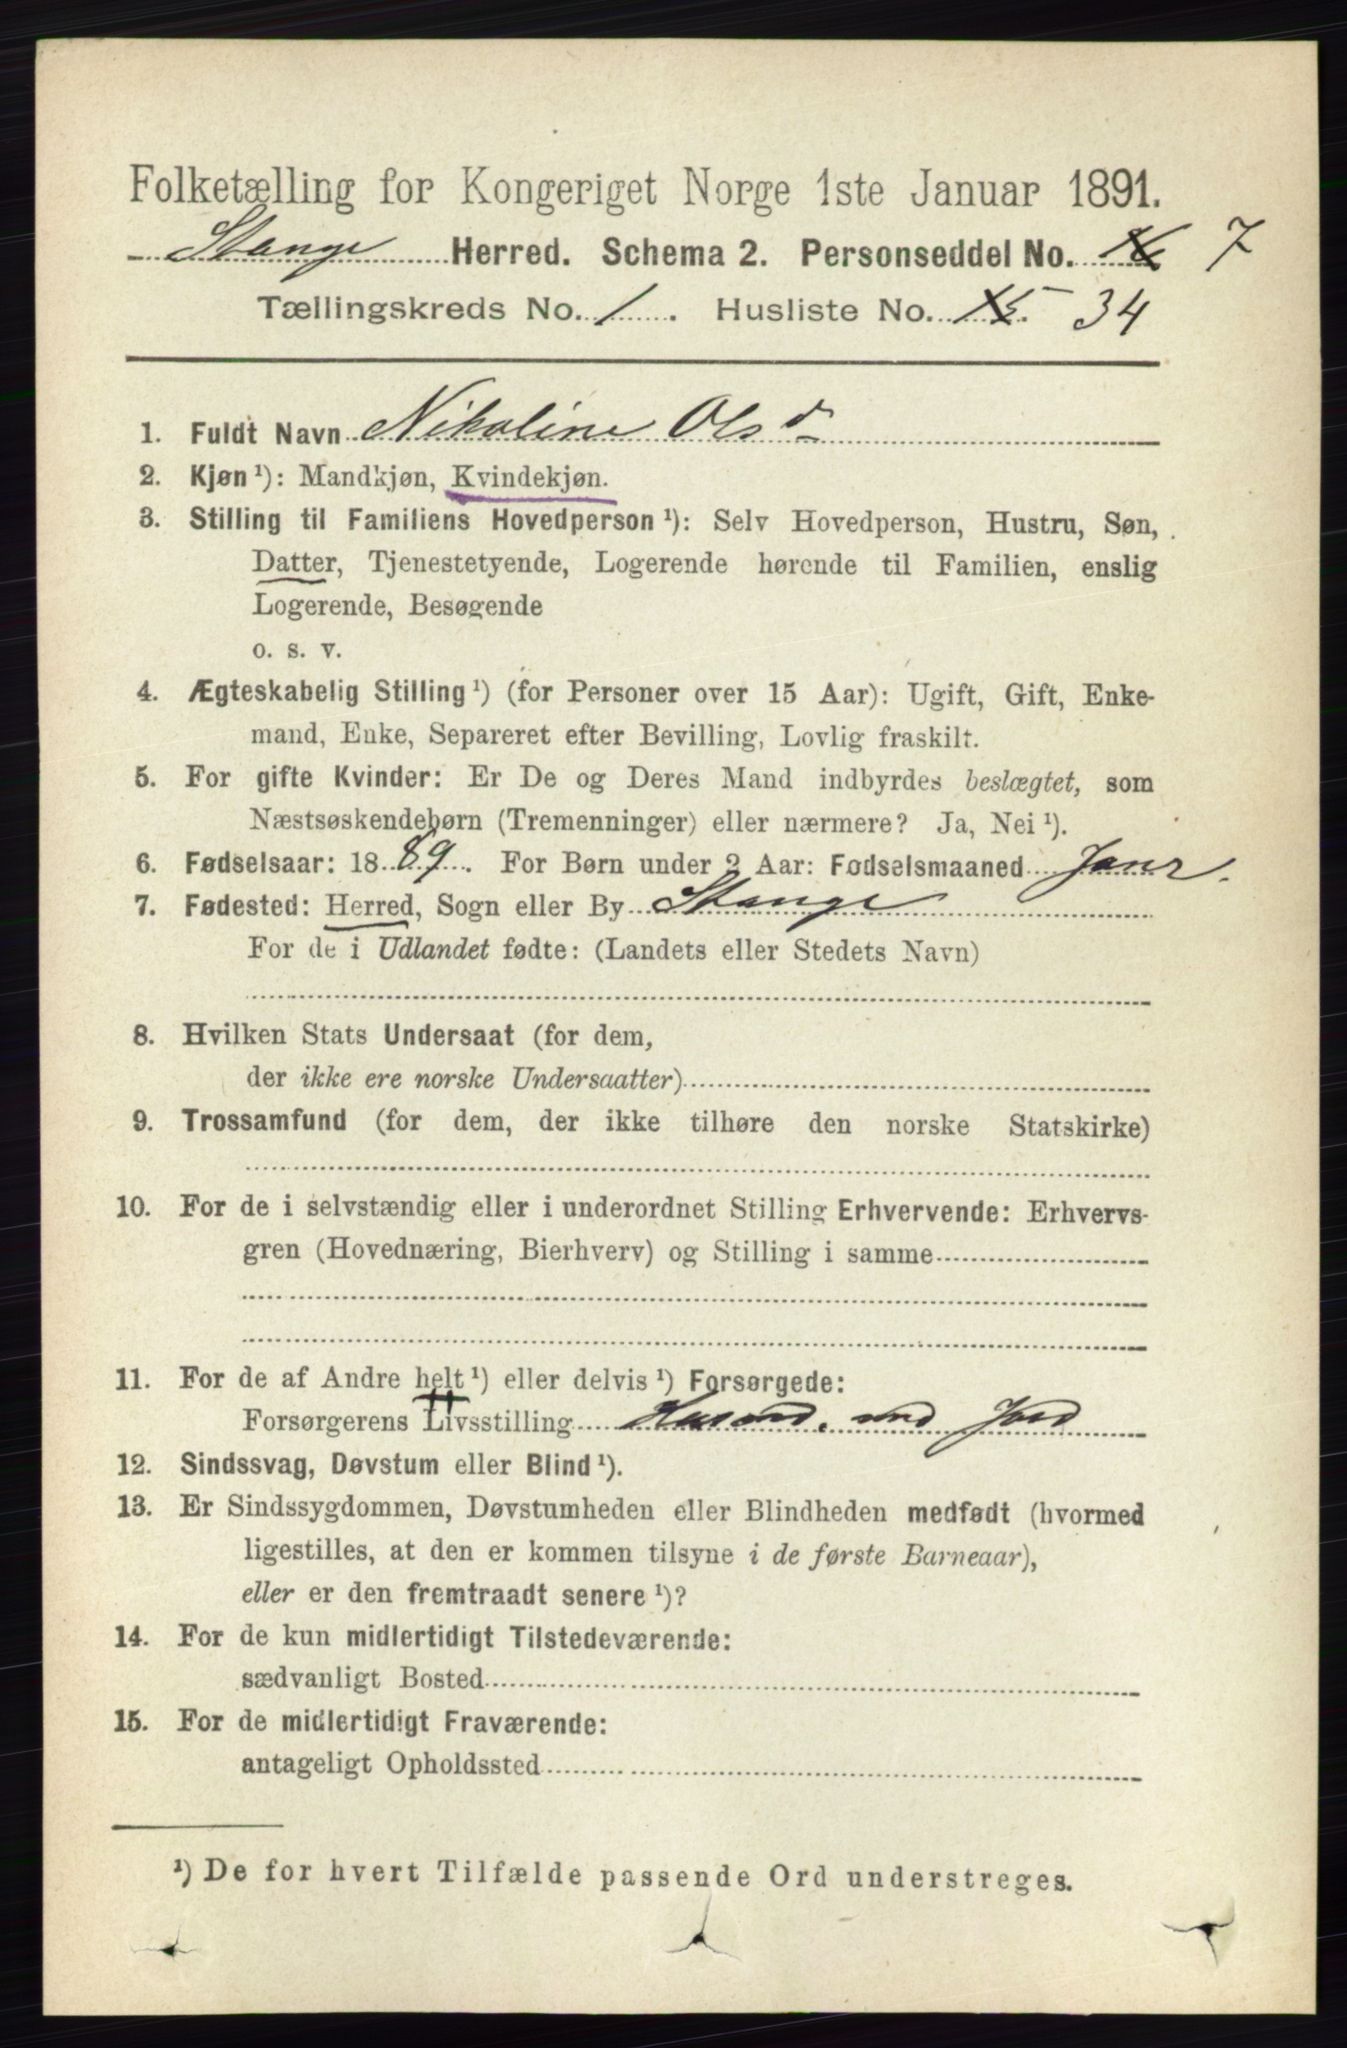 Folketælling for Kongeriget Norge 1ste Januar 1891.
Stange Herred. Schema 2. Personseddel No. 7
Tællingskreds No. 1. Husliste No. 15. 34
1. Fuldt Navn Nikoline Olsd
2. Kjøn ¹): Mandkjøn, Kvindekjøn.
3. Stilling til Familiens Hovedperson ¹): Selv Hovedperson, Hustru, Søn,
Datter, Tjenestetyende, Logerende hørende til Familien, enslig
Logerende, Besøgende
o. s. v.
4. Ægteskabelig Stilling ¹) (for Personer over 15 Aar): Ugift, Gift, Enke-
mand, Enke, Separeret efter Bevilling, Lovlig fraskilt.
5. For gifte Kvinder: Er De og Deres Mand indbyrdes beslægtet, som
Næstsøskendebørn (Tremenninger) eller nærmere? Ja, Nei ¹).
6. Fødselsaar: 1889. For Børn under 2 Aar: Fødselsmaaned Janr.
7. Fødested: Herred, Sogn eller By Stange
For de i Udlandet fødte: (Landets eller Stedets Navn)
8. Hvilken Stats Undersaat (for dem,
der ikke ere norske Undersaatter)
9. Trossamfund (for dem, der ikke tilhøre den norske Statskirke)
10. For de i selvstændig eller i underordnet Stilling Erhvervende: Erhvervs-
gren (Hovednæring, Bierhverv) og Stilling i samme
11. For de af Andre helt ¹) eller delvis ¹) Forsørgede:
Forsørgerens Livsstilling Husmd. med Jord
12. Sindssvag, Døvstum eller Blind ¹).
13. Er Sindssygdommen, Døvstumheden eller Blindheden medfødt (hvormed
ligestilles, at den er kommen tilsyne i de første Barneaar),
eller er den fremtraadt senere ¹)?
14. For de kun midlertidigt Tilstedeværende:
sædvanligt Bosted
15. For de midlertidigt Fraværende:
antageligt Opholdssted
¹) De for hvert Tilfælde passende Ord understreges.